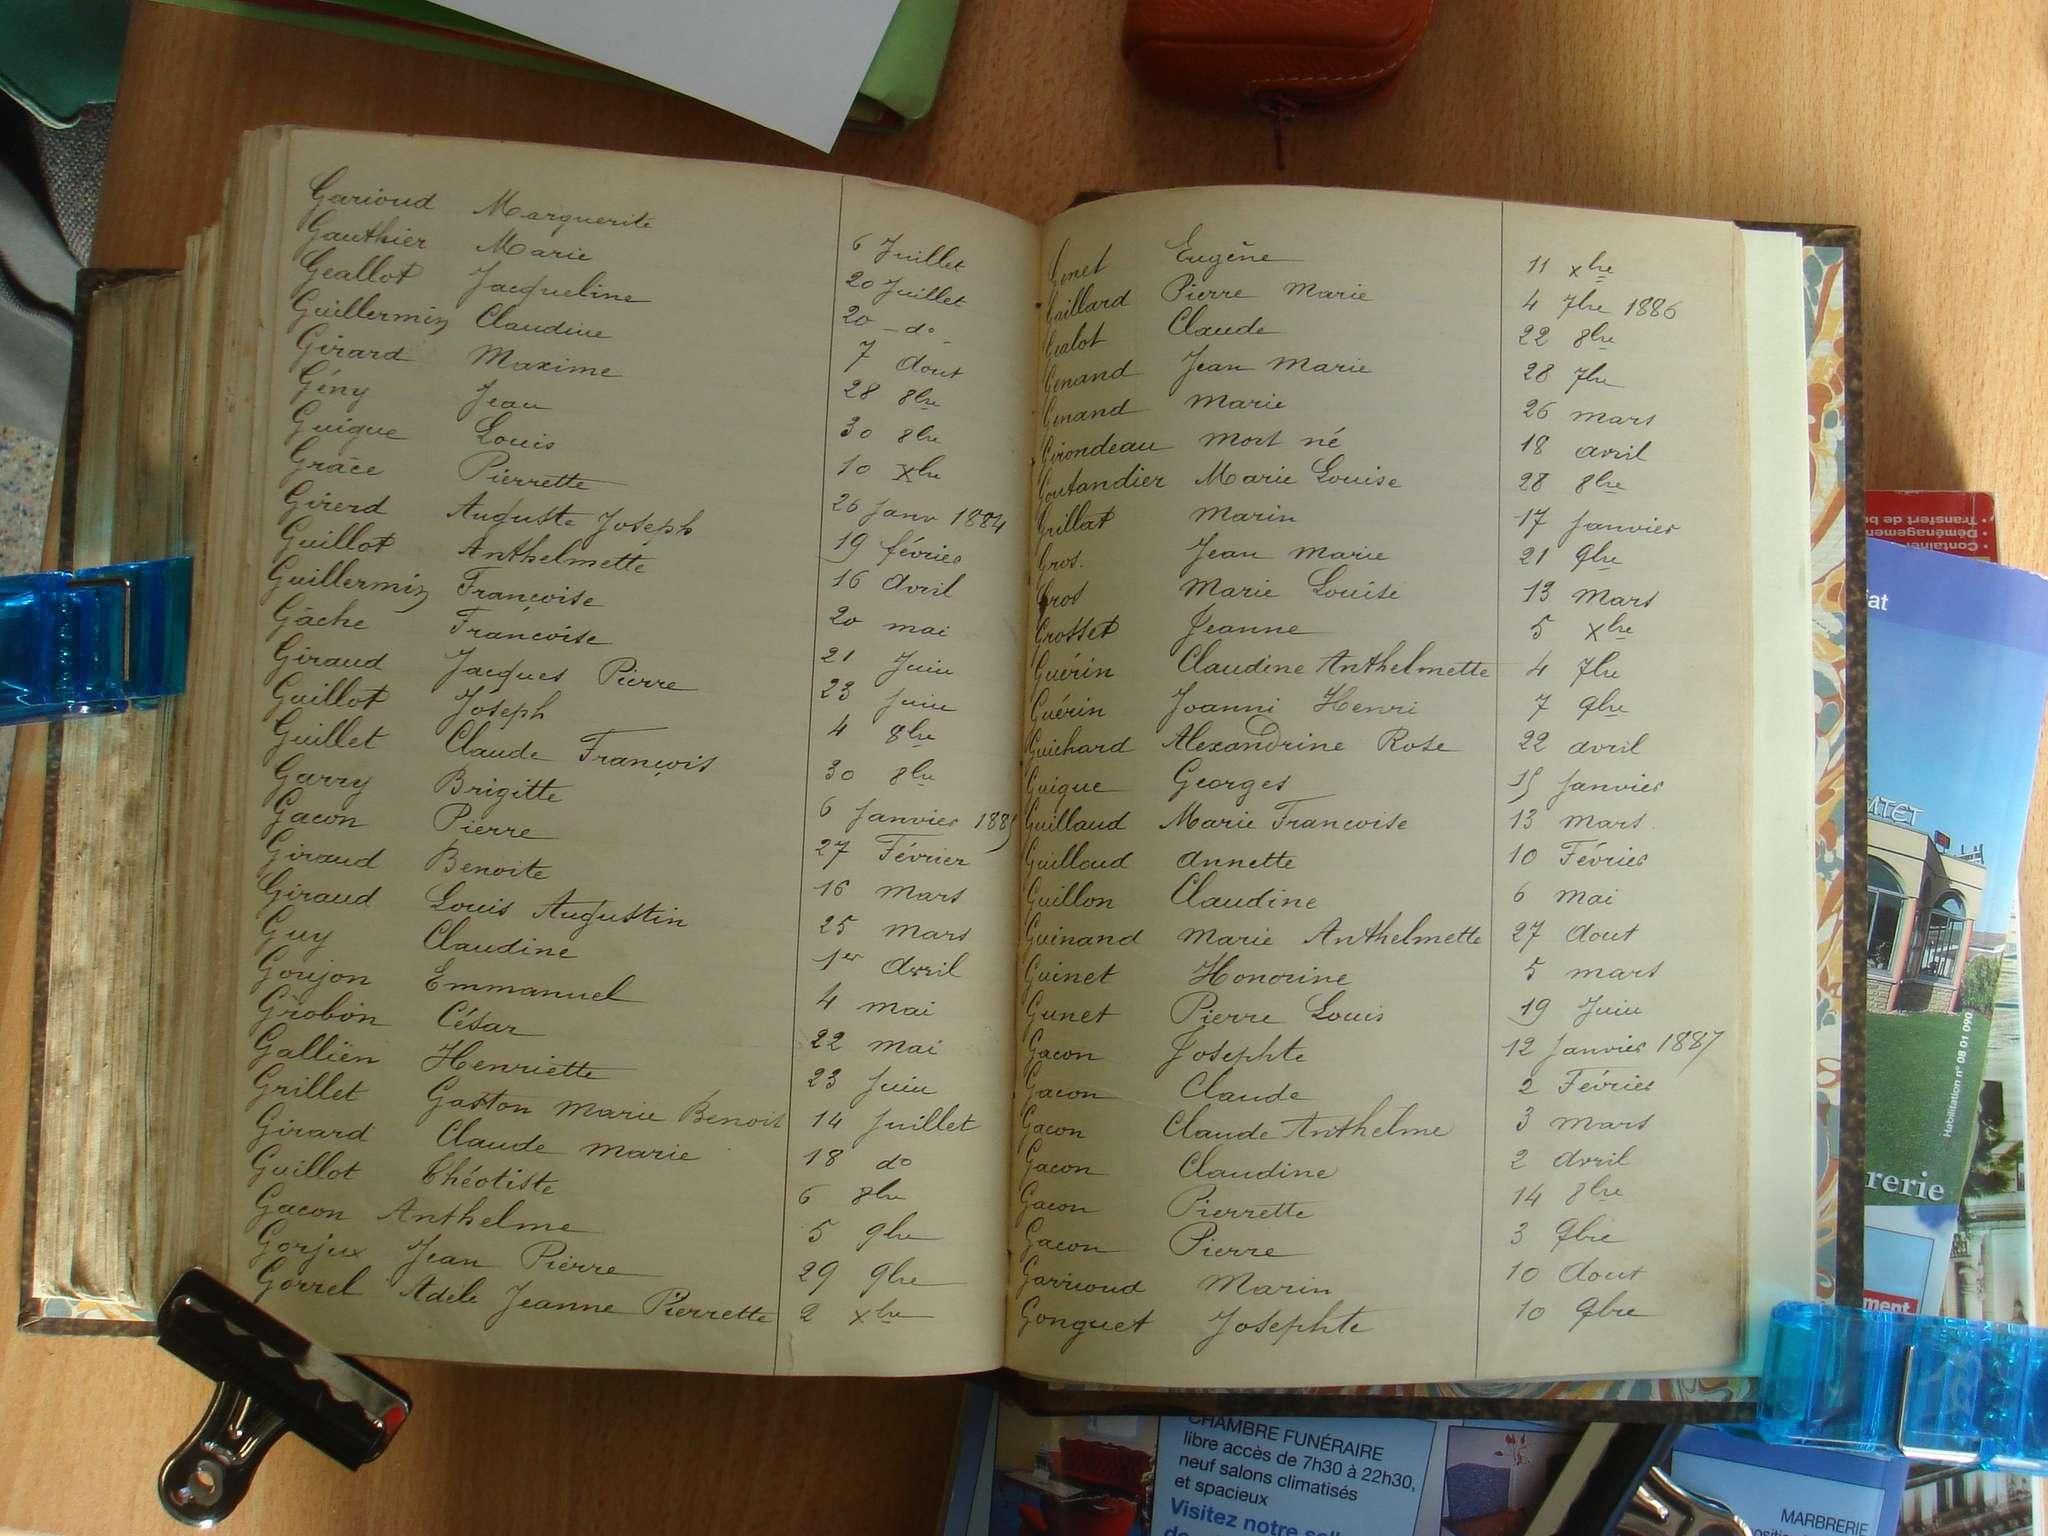 Garioud Marguerite 6 Juillet
Gauthier Marie 20 Juillet
Geallot Jacqueline 20 - do
Guillermin Claudine 7 Aout
Girard Maxime 28 8bre
Gény Jean 30 8bre
Guigue Louis 10 Xbre
Grâce Pierrette 26 Janv 1884
Girerd Auguste Joseph 19 février
Guillot Anthelmette 16 Avril
Guillermin Françoise 20 mai
Gâche Françoise 21 Juin
Giraud Jacques Pierre 23 Juin
Guillot Joseph 4 8bre
Guillet Claude François 30 8bre
Garry Brigitte 6 Janvier 1885
Gacon Pierre 27 Février
Giraud Benoite 16 Mars
Giraud Louis Augustin 25 Mars
Guy Claudine 1er Avril
Goujon Emmanuel 4 mai
Grobon César 22 mai
Gallien Henriette 23 Juin
Grillet Gaston Marie Benoit 14 Juillet
Girard Claude Marie 18 do
Guillot Théotiste 6 8bre
Gacon Anthelme 5 9bre
Gorjux Jean Pierre 29 9bre
Gorrel Adèle Jeanne Pierrette 2 Xbre
Genet Eugène 11 Xbre
Gaillard Pierre Marie 4 7bre 1886
Gealot Claude 22 8bre
Genand Jean Marie 28 7bre
Genand Marie 26 Mars
Girondeau Mort né 18 Avril
Goutandier Marie Louise 28 8bre
Grillat Marin 17 Janvier
Gros. Jean Marie 21 9bre
Gros Marie Louise 13 Mars
Grosset Jeanne 5 Xbre
Guérin Claudine Anthelmette 4 7bre
Guérin Joanni Henri 7 9bre
Guichard Alexandrine Rose 22 Avril
Guigue Georges 15 Janvier
Guillaud Marie Francoise 13 Mars
Guilloud Annette 10 Février
Guillon Claudine 6 Mai
Guinand Marie Anthelmette 27 Aout
Guinet Honorine 5 Mars
Gunet Pierre Louis 19 Juin
Gacon Josephte 12 Janvier 1887
Gacon Claude 2 Février
Gacon Claude Anthelme 3 Mars
Gacon Claudine 2 Avril
Gacon Pierrette 14 8bre
Gacon Pierre 3 9bre
Garrioud Marin 10 Aout
Gonguet Josephte 10 9bre
• Container
• Déménagement
• Transfert de bu
Habilitation n° 08 01 090
rerie
ment
CHAMBRE FUNÉRAIRE
libre accès de 7h30 à 22h30,
neuf salons climatisés
et spacieux
Visitez notre sall
MARBRERIE